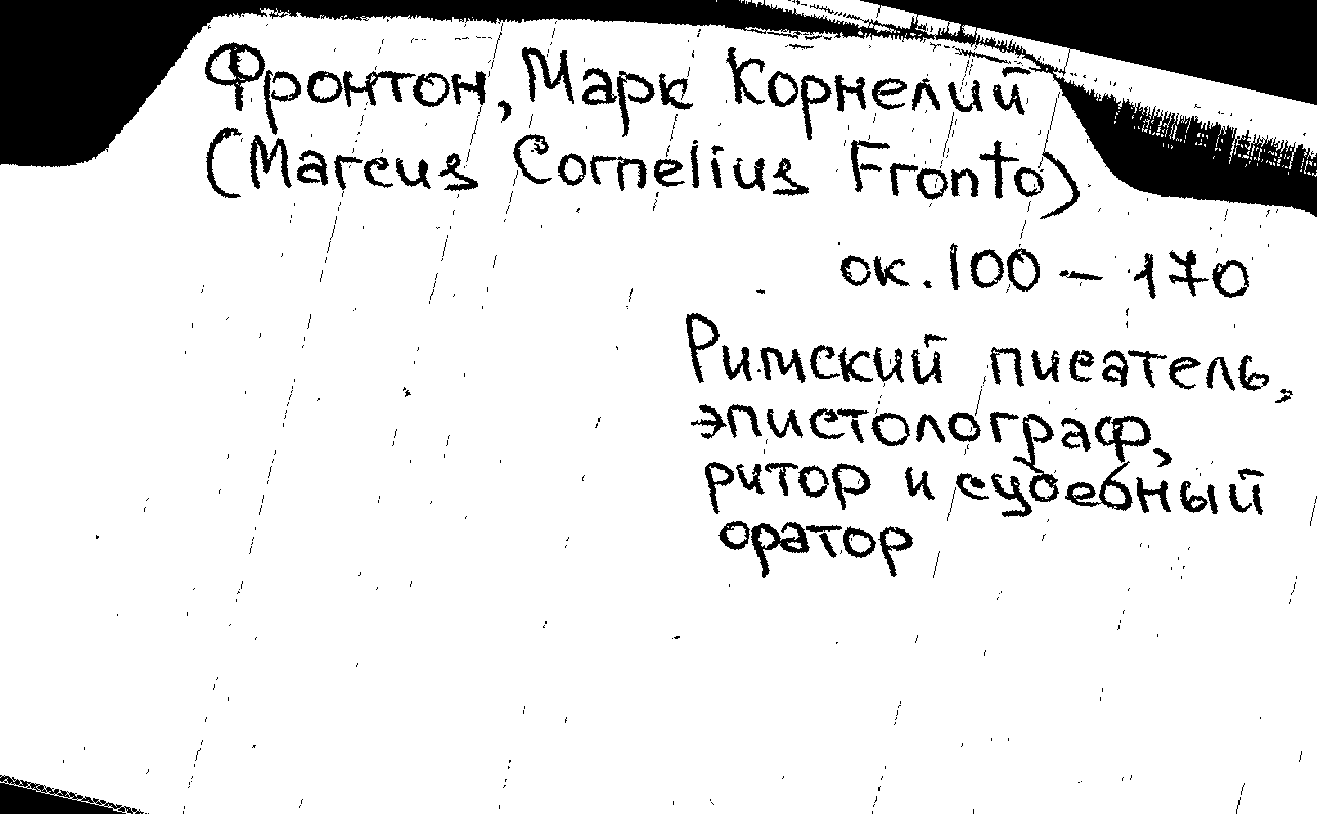 Фронтон, Марк Корнелий
(Marcus Cornelius Fronto)
ок. 100 – 170
Римский писатель,
эпистолограф,
ритор и судебный
оратор